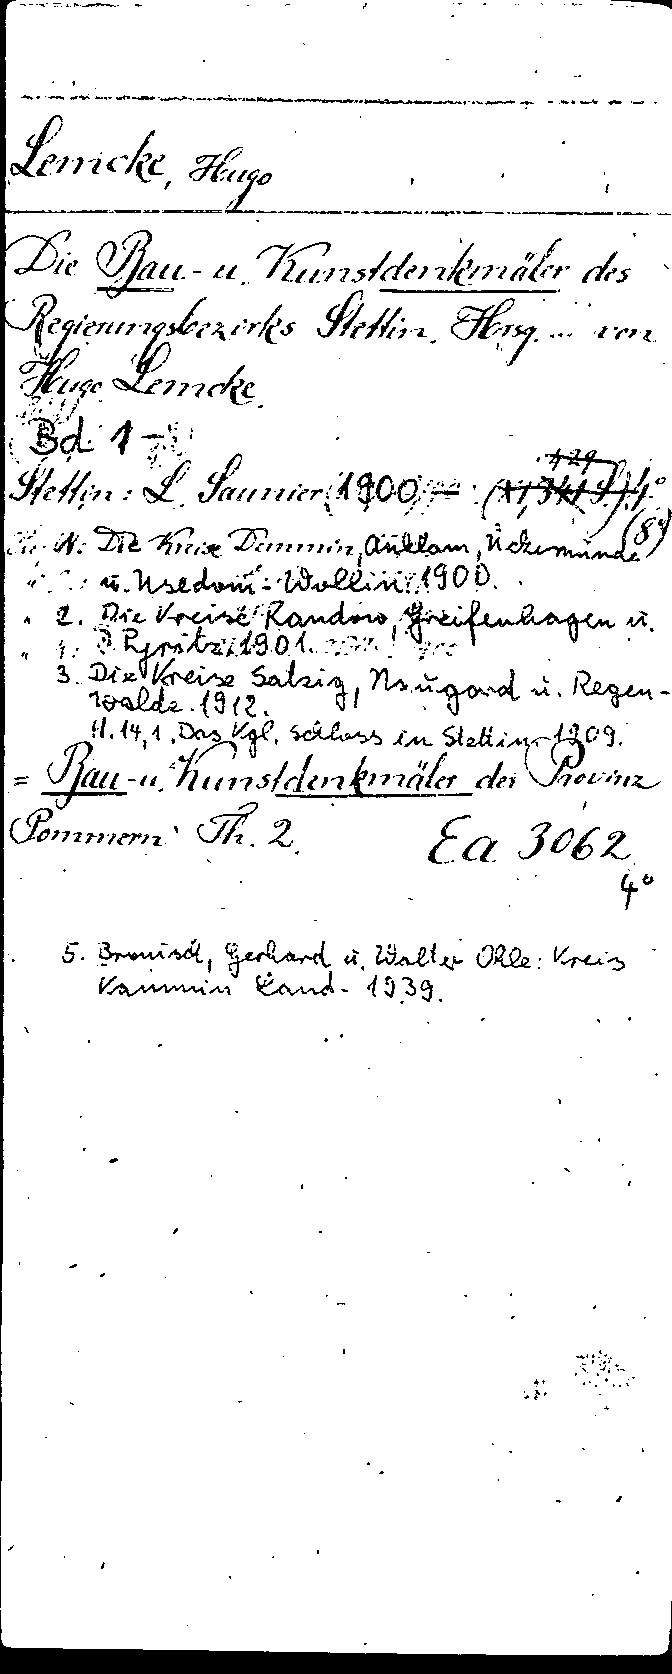 Lemcke, Hugo
Die Bau- u. Kunstdenkmäler des
Regierungsbezirks Stettin. Hrsg. ... von
Hugo Lemcke.
Bd. 1-
Stettin: L. Saunier 1900 4°
(8°)
1. Die Kreise Demmin, Anklam, Ückermünde
u. Usedom-Wollin. 1900.
2. Die Kreise Randow, Greifenhagen u.
Pyritz. 1901.
3. Die Kreise Satzig, Naugard u. Regen-
walde. 1912.
H. 14,1. Das Kgl. Schloss in Stettin. 1909.
= Bau- u. Kunstdenkmäler der Provinz
Pommern Th. 2.
Ea 3062
4°
5. Bronisch, Gerhard u. Walter Ohle: Kreis
Kammin Land. 1939.